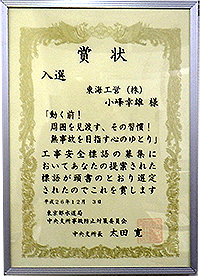 賞状
入選
東海工営（株）
小峰幸雄 様
「動く前！
周囲を見渡す、その習慣！
無事故を目指す心のゆとり」
工事安全標語の募集に
おいてあなたの提案された
標語が頭書のとおり選定
されたのでこれを賞します
平成26年12月 3日
東京都水道局
中央支所事故防止対策委員会
中央支所長 太田 寛